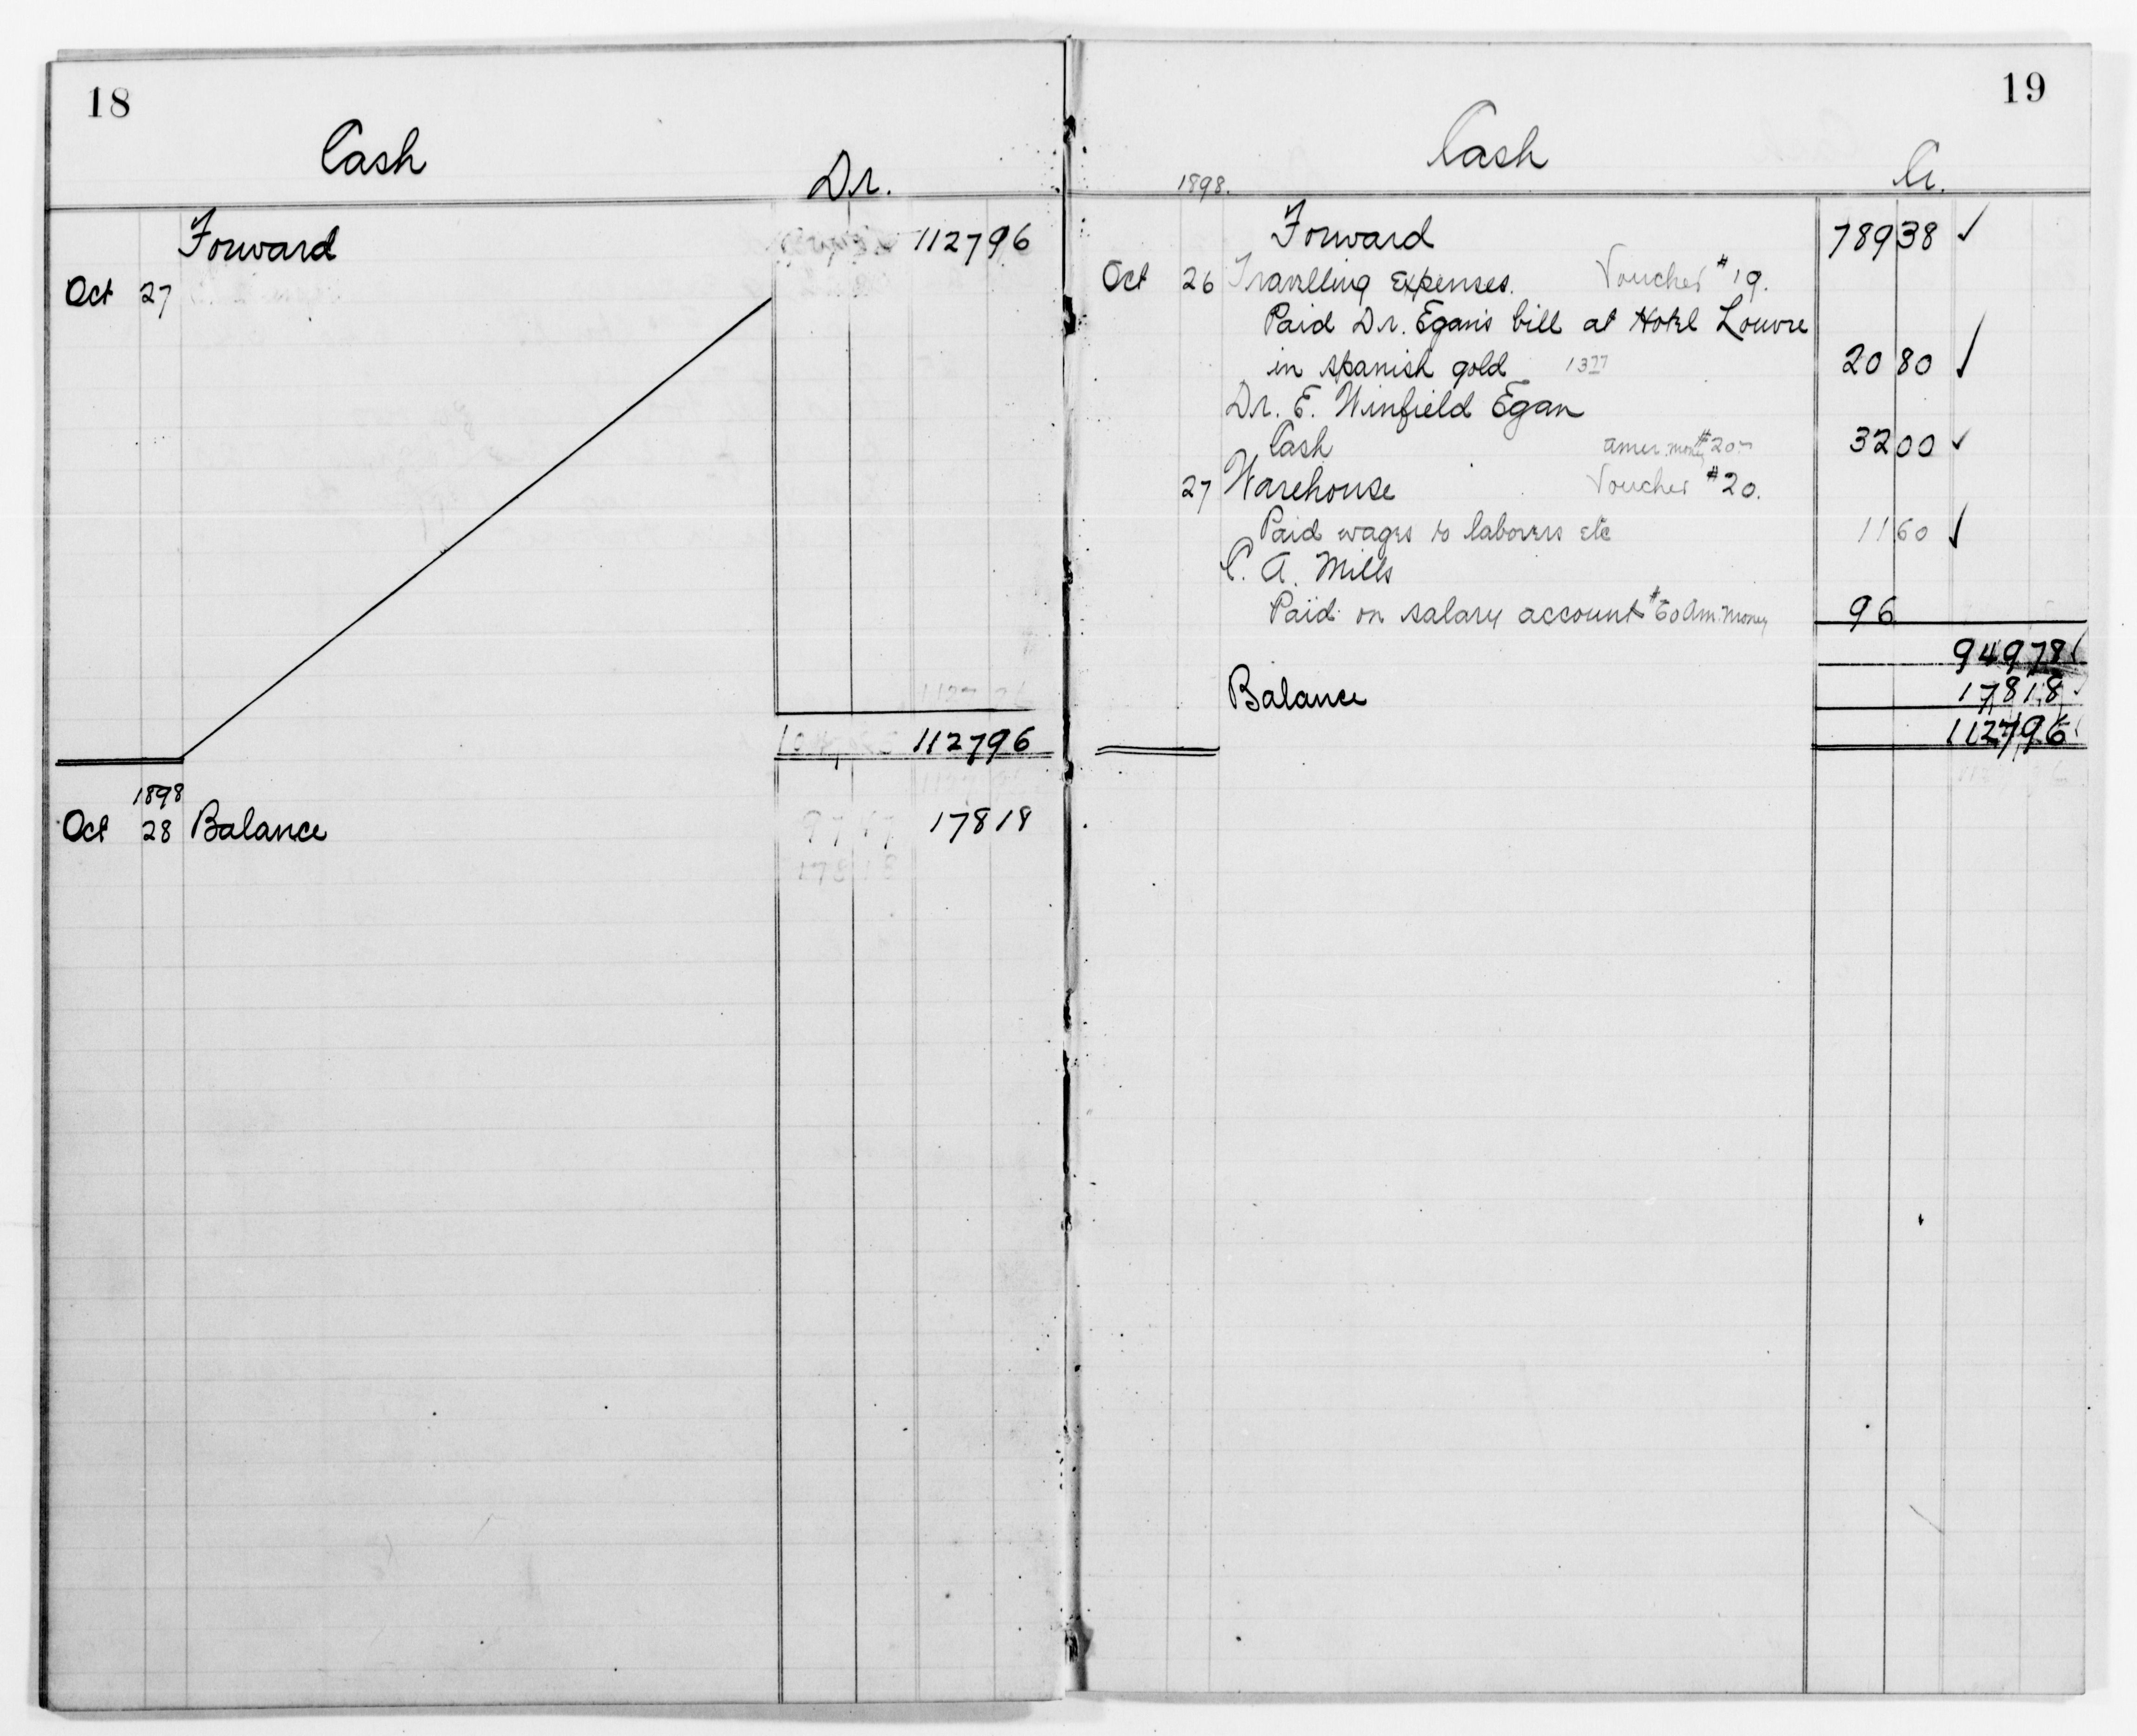 18
Cash
Dr.
Forward 1127 96
Oct 27
1127 96
1898
Oct 28 Balance 178 18
19
Cash
Cr.
1898.
Forward 789 38 ✓
Oct 26 Travelling Expenses. Voucher #19.
Paid Dr. Egan's bill at Hotel Louvre
in Spanish gold 13 20 80 ✓
Dr. E. Winfield Egan
Cash Amer. money #20 32 00 ✓
27 Warehouse Voucher #20.
Paid wages to laborers etc 11 60 ✓
C. A. Mills
Paid on salary account #60 Am. Money 96
949 78 ✓
Balance 178 18
1127 96